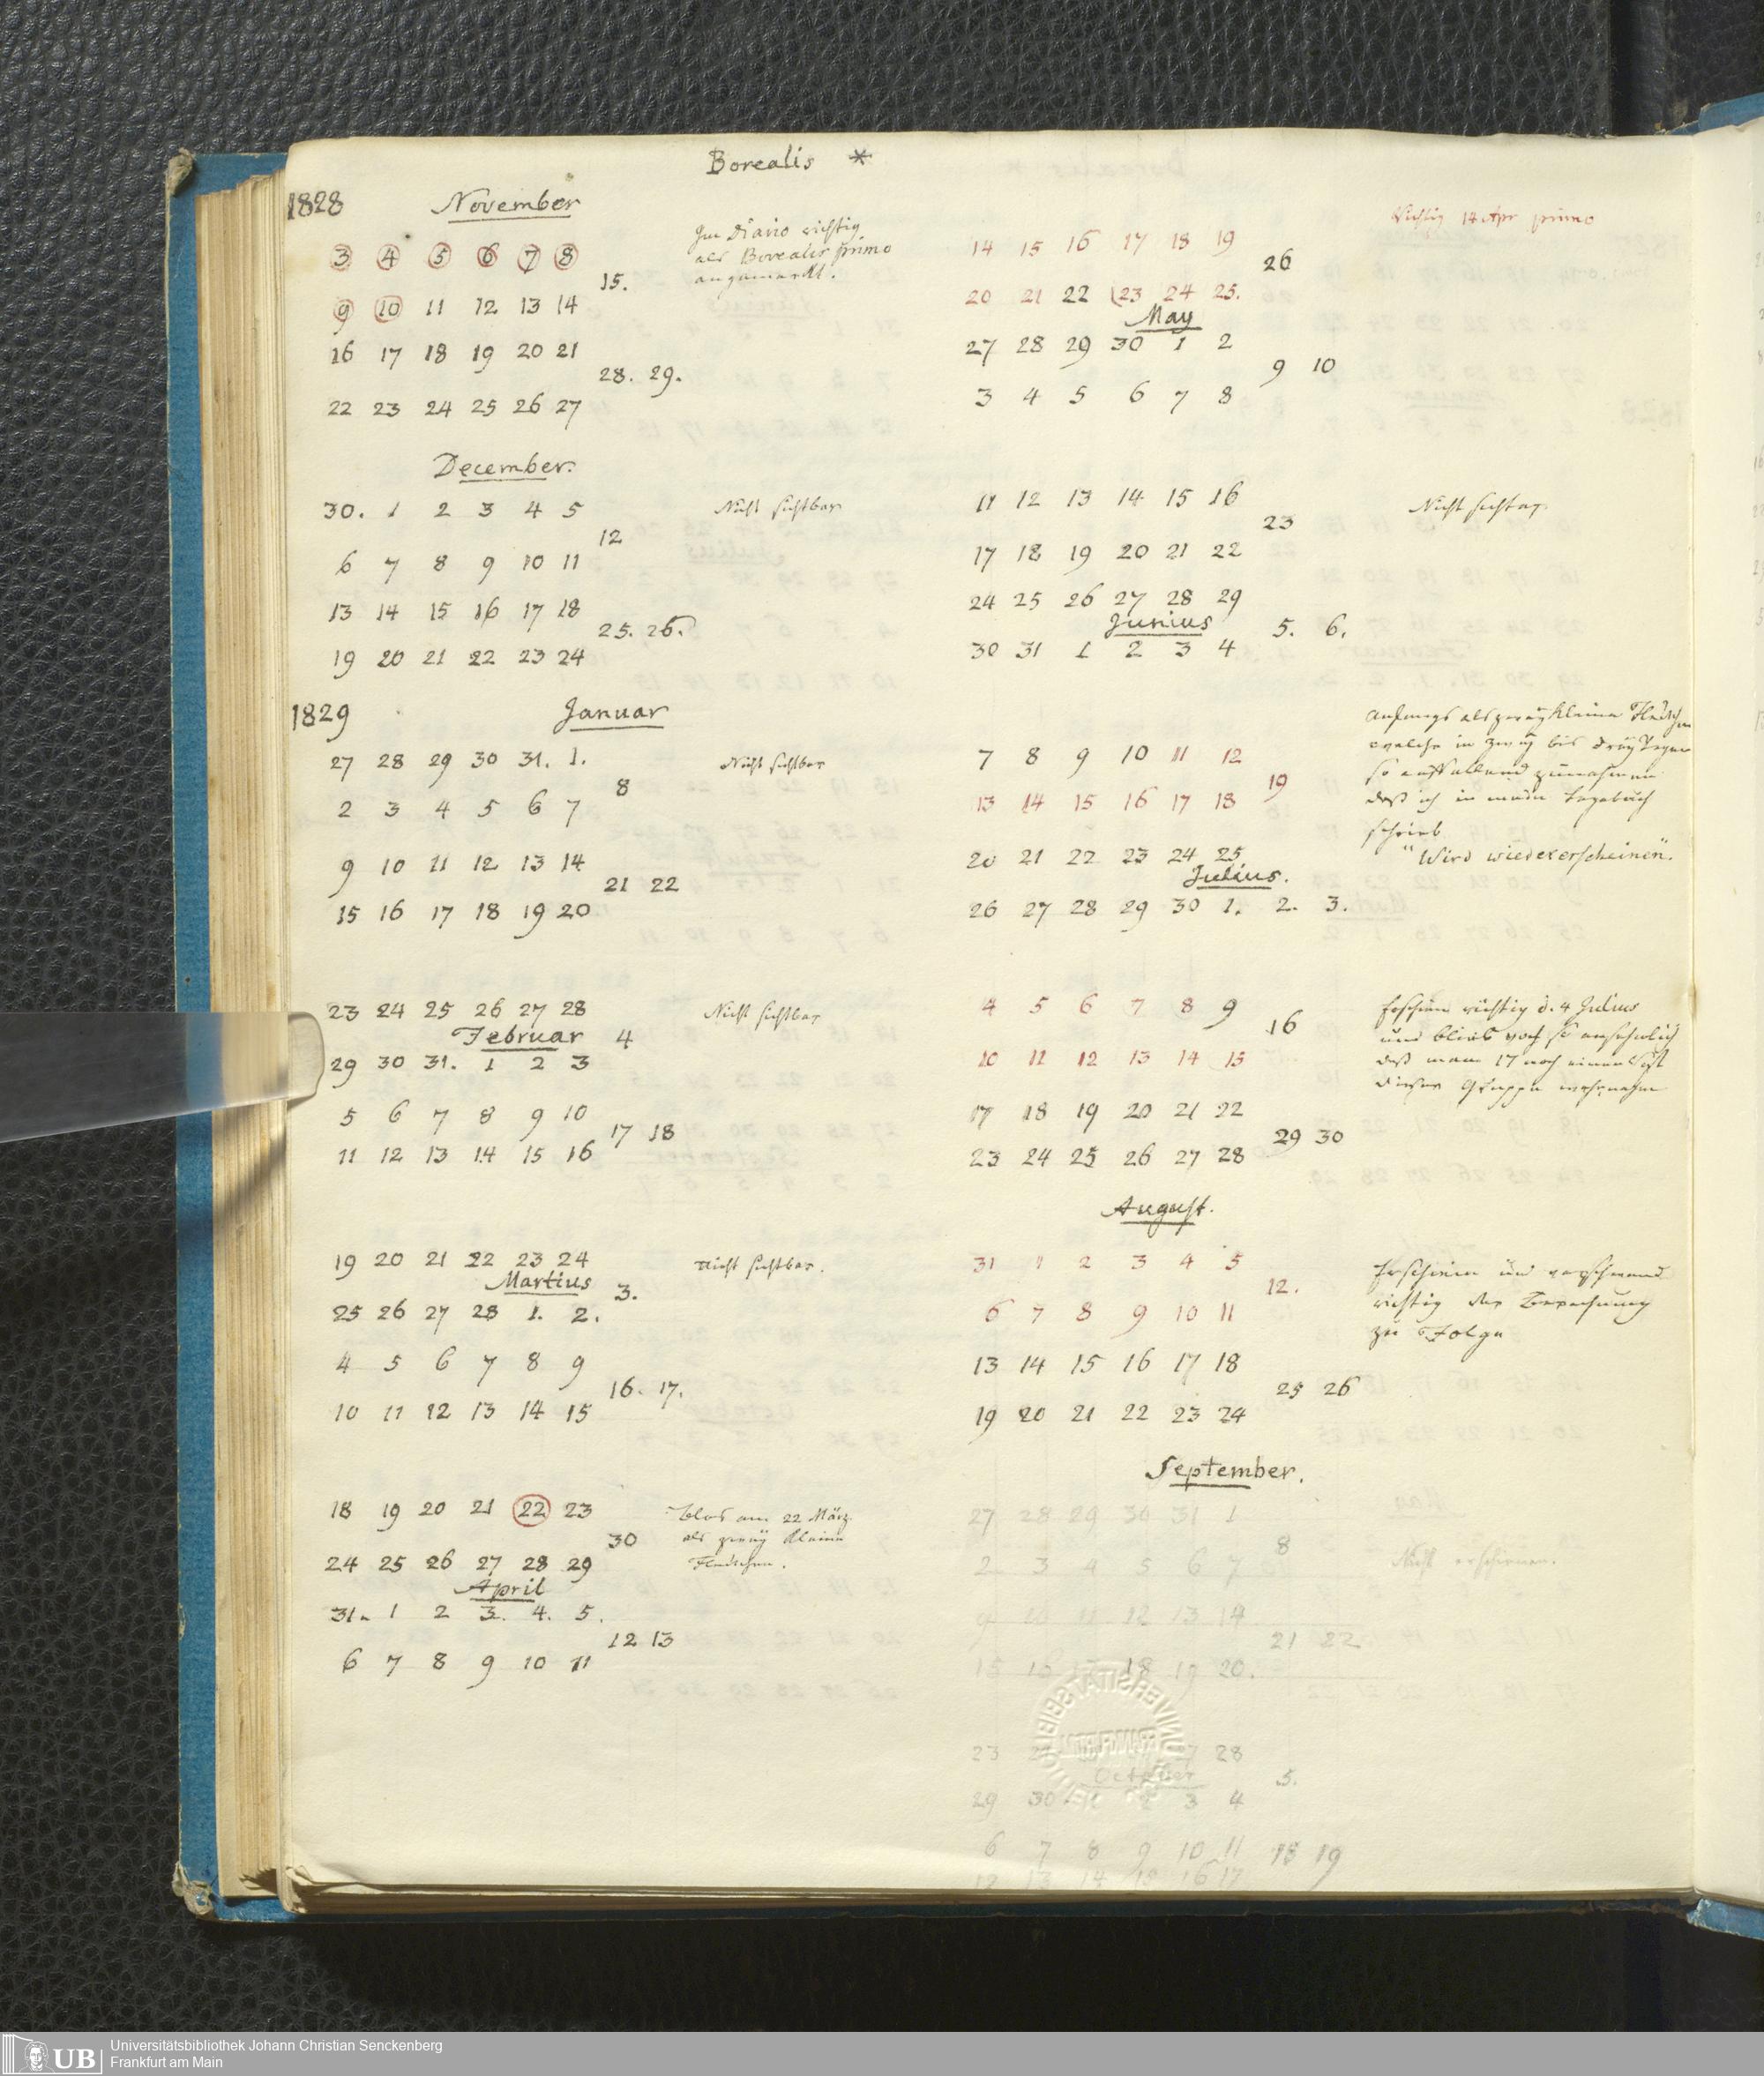 Borealis *
1828 November
3 4 5 6 7 8
15.
9 10 11 12 13 14
16 17 18 19 20 21
28. 29.
22 23 24 25 26 27
Im Diario richtig
als Borealis primo
angemerkt.
December.
30. 1 2 3 4 5
12
6 7 8 9 10 11
13 14 15 16 17 18
25. 26.
19 20 21 22 23 24
Nicht sichtbar
1829 Januar
27 28 29 30 31. 1.
8
2 3 4 5 6 7
9 10 11 12 13 14
21 22
15 16 17 18 19 20
Nicht sichtbar
23 24 25 26 27 28
Februar 4
29 30 31. 1 2 3
5 6 7 8 9 10
17 18
11 12 13 14 15 16
Nicht sichtbar
19 20 21 22 23 24
Martius 3.
25 26 27 28 1. 2.
4 5 6 7 8 9
16. 17.
10 11 12 13 14 15
nicht sichtbar.
18 19 20 21 22 23
30
24 25 26 27 28 29
April
31. 1 2 3. 4. 5.
12 13
6 7 8 9 10 11
Blos am 22 März
als zweÿ kleine
Fleckchen.
14 15 16 17 18 19
26
20 21 22 23 24 25.
May
27 28 29 30 1 2
9 10
3 4 5 6 7 8
Richtig 14 Apr primo
11 12 13 14 15 16
23
17 18 19 20 21 22
24 25 26 27 28 29
Junius 5. 6.
30 31 1 2 3 4
Nicht sichtbar
7 8 9 10 11 12
19
13 14 15 16 17 18
20 21 22 23 24 25
Julius.
26 27 28 29 30 1. 2. 3.
Anfangs als zweÿ kleine Fleckchen
welche in zweÿ bis dreÿ Tagen
so auffallend zunahmen
daß ich in mein Tagebuch
schrieb
"Wird wiedererscheinen".
4 5 6 7 8 9
16
10 11 12 13 14 15
17 18 19 20 21 22
29 30
23 24 25 26 27 28
Erschien richtig d. 4 Julius
und blieb noch so ansehnlich
daß man 17 noch einen Rest
dieser Gruppe wahrnahm
August.
31 1 2 3 4 5
12.
6 7 8 9 10 11
13 14 15 16 17 18
25 26
19 20 21 22 23 24
Erschien und verschwand
richtig der Berechnung
zu Folge
September.
27 28 29 30 31 1
8
2 3 4 5 6 7
9 10 11 12 13 14
21 22
15 16 17 18 19 20.
Nicht erschienen.
23 27 28
October 5.
29 30 1 2 3 4
6 7 8 9 10 11 18 19
12 13 14 15 16 17
Universitätsbibliothek Johann Christian Senckenberg
UB Frankfurt am Main